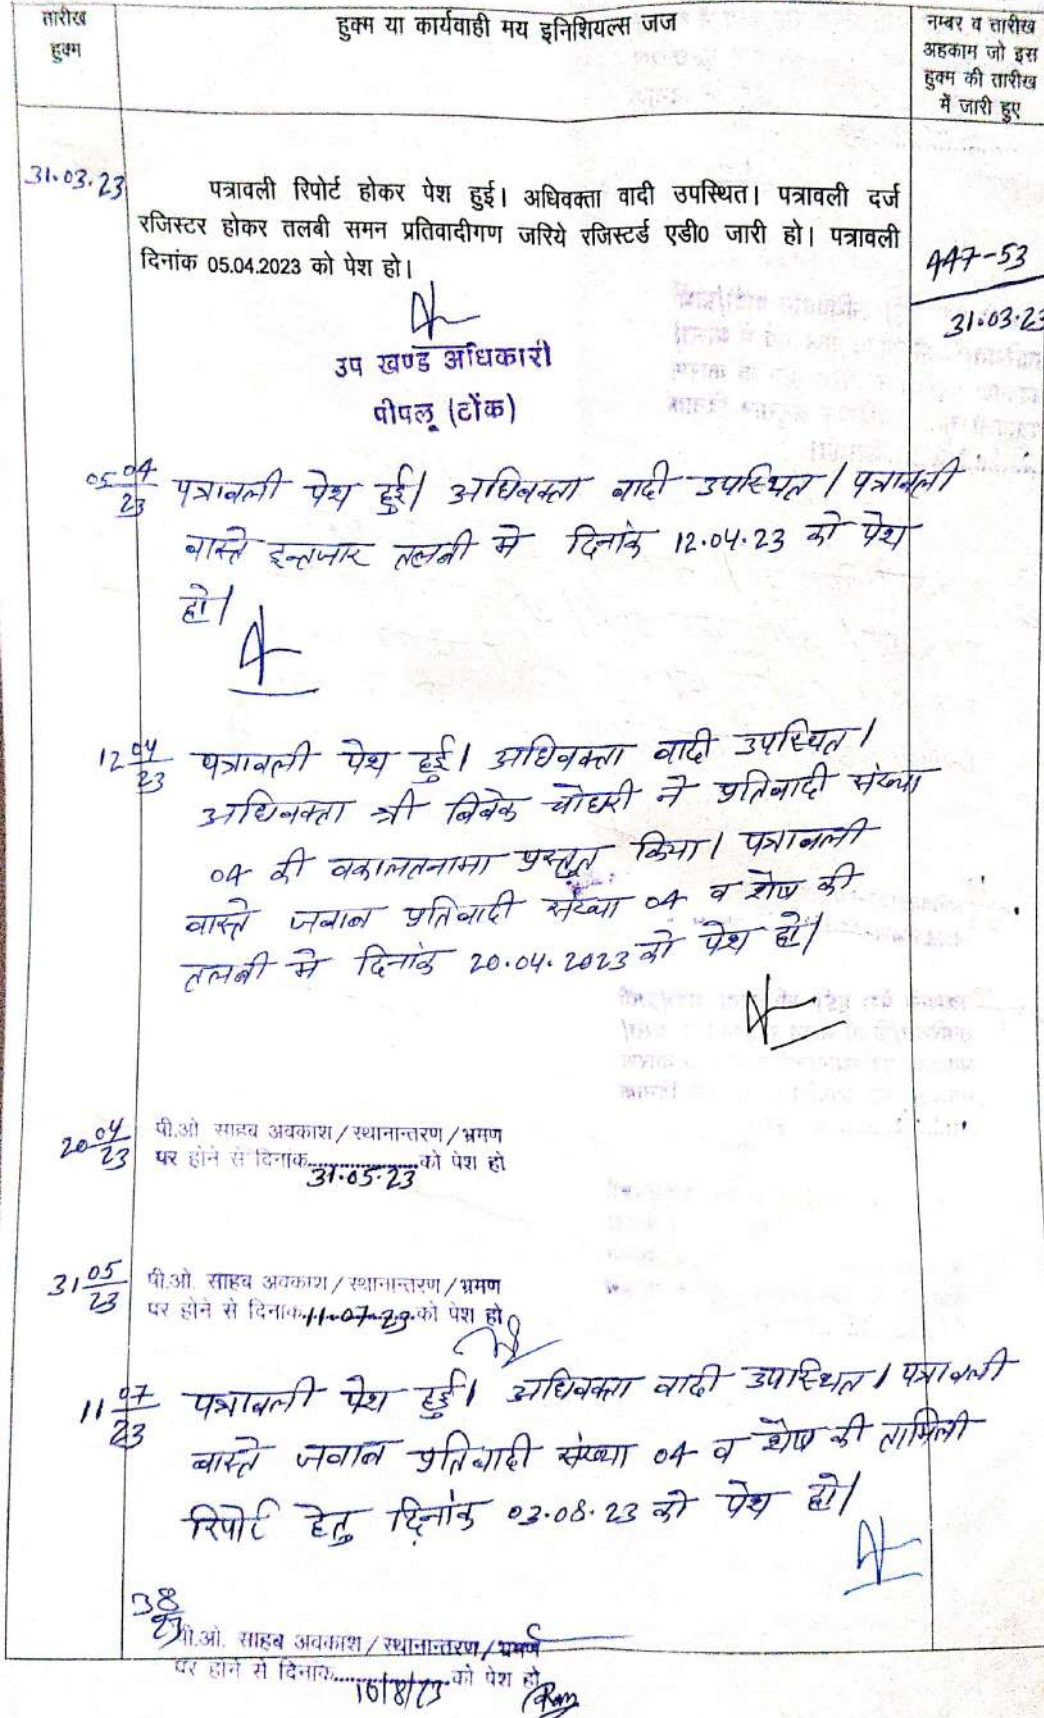 तारीख
हुक्म
हुक्म या कार्यवाही मय इनिशियल्स जज
नम्बर व तारीख
अहकाम जो इस
हुक्म की तारीख
में जारी हुए
31.03.23
पत्रावली रिपोर्ट होकर पेश हुई। अधिवक्ता वादी उपस्थित। पत्रावली दर्ज
रजिस्टर होकर तलबी समन प्रतिवादीगण जरिये रजिस्टर्ड एडी0 जारी हो। पत्रावली
दिनांक 05.04.2023 को पेश हो।
447-53
31.03.23
उप खण्ड अधिकारी
पीपलू (टोंक)
05 04/23 पत्रावली पेश हुई। अधिवक्ता वादी उपस्थित। पत्रावली
वास्ते इन्तजार तलबी मे दिनांक 12.04.23 को पेश
हो।
12 04/23 पत्रावली पेश हुई। अधिवक्ता वादी उपस्थित।
अधिवक्ता श्री विवेक चोधरी ने प्रतिवादी संख्या
04 की वकालतनामा प्रस्तुत किया। पत्रावली
वास्ते जवाब प्रतिवादी संख्या 04 व शेष की
तलबी मे दिनांक 20.04.2023 को पेश हो।
20 04/23 पी.ओ साहब अवकाश/स्थानान्तरण/भ्रमण
पर होने से दिनांक 31.05.23 को पेश हो
31 05/23 पी.ओ. साहब अवकाश/स्थानान्तरण/भ्रमण
पर होने से दिनांक 11.07.23 को पेश हो
11 07/23 पत्रावली पेश हुई। अधिवक्ता वादी उपस्थित। पत्रावली
वास्ते जवाब प्रतिवादी संख्या 04 व शेष की तामिली
रिपोर्ट हेतु दिनांक 03.08.23 को पेश हो।
3 8/23 पी.ओ. साहब अवकाश/स्थानान्तरण/भ्रमण
पर होने से दिनांक 16/8/23 को पेश हो